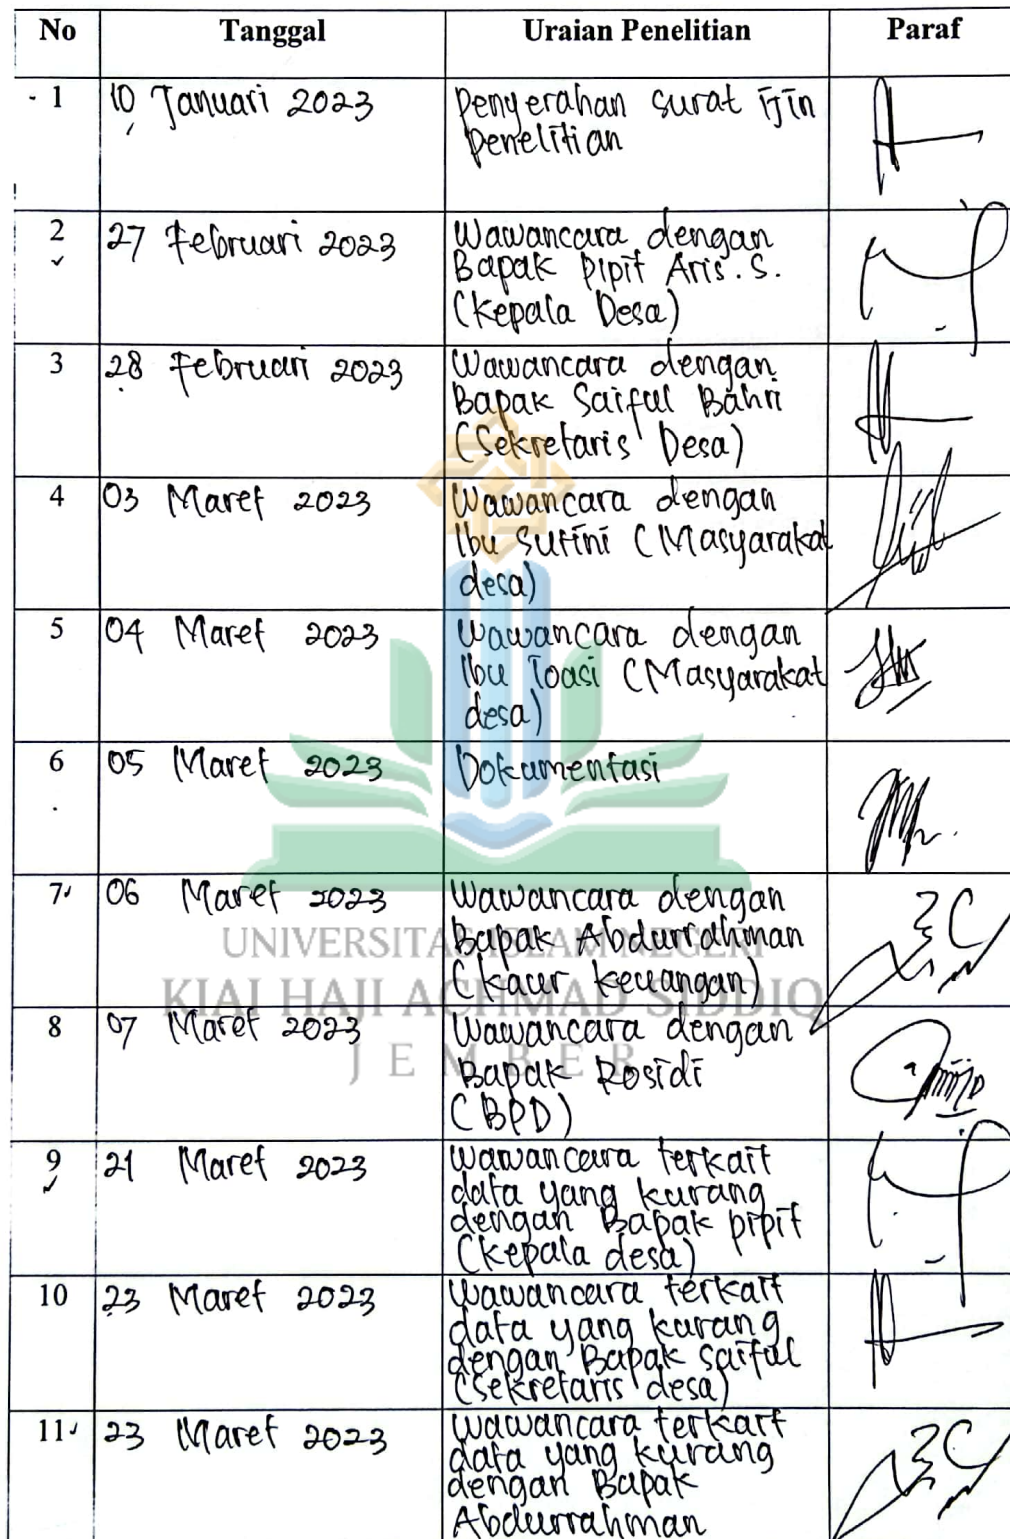 No Tanggal Uraian Penelitian Paraf
1 10 Januari 2023 Penyerahan surat ijin
penelitian
2 27 Februari 2023 Wawancara dengan
Bapak Pipit Aris. S.
(Kepala Desa)
3 28 Februari 2023 Wawancara dengan
Bapak Saiful Bahri
(Sekretaris Desa)
4 03 Maret 2023 Wawancara dengan
Ibu Sutini (Masyarakat
desa)
5 04 Maret 2023 Wawancara dengan
Ibu Toasi (Masyarakat
desa)
6 05 Maret 2023 Dokumentasi
7 06 Maret 2023 Wawancara dengan
Bapak Abdurrahman
(Kaur keuangan)
8 07 Maret 2023 Wawancara dengan
Bapak Rosidi
(BPD)
9 21 Maret 2023 Wawancara terkait
data yang kurang
dengan Bapak pipit
(Kepala desa)
10 23 Maret 2023 Wawancara terkait
data yang kurang
dengan Bapak Saiful
(Sekretaris desa)
11 23 Maret 2023 Wawancara terkait
data yang kurang
dengan Bapak
Abdurrahman
UNIVERSITAS ISLAM NEGERI
KIAI HAJI ACHMAD SIDDIQ
JEMBER